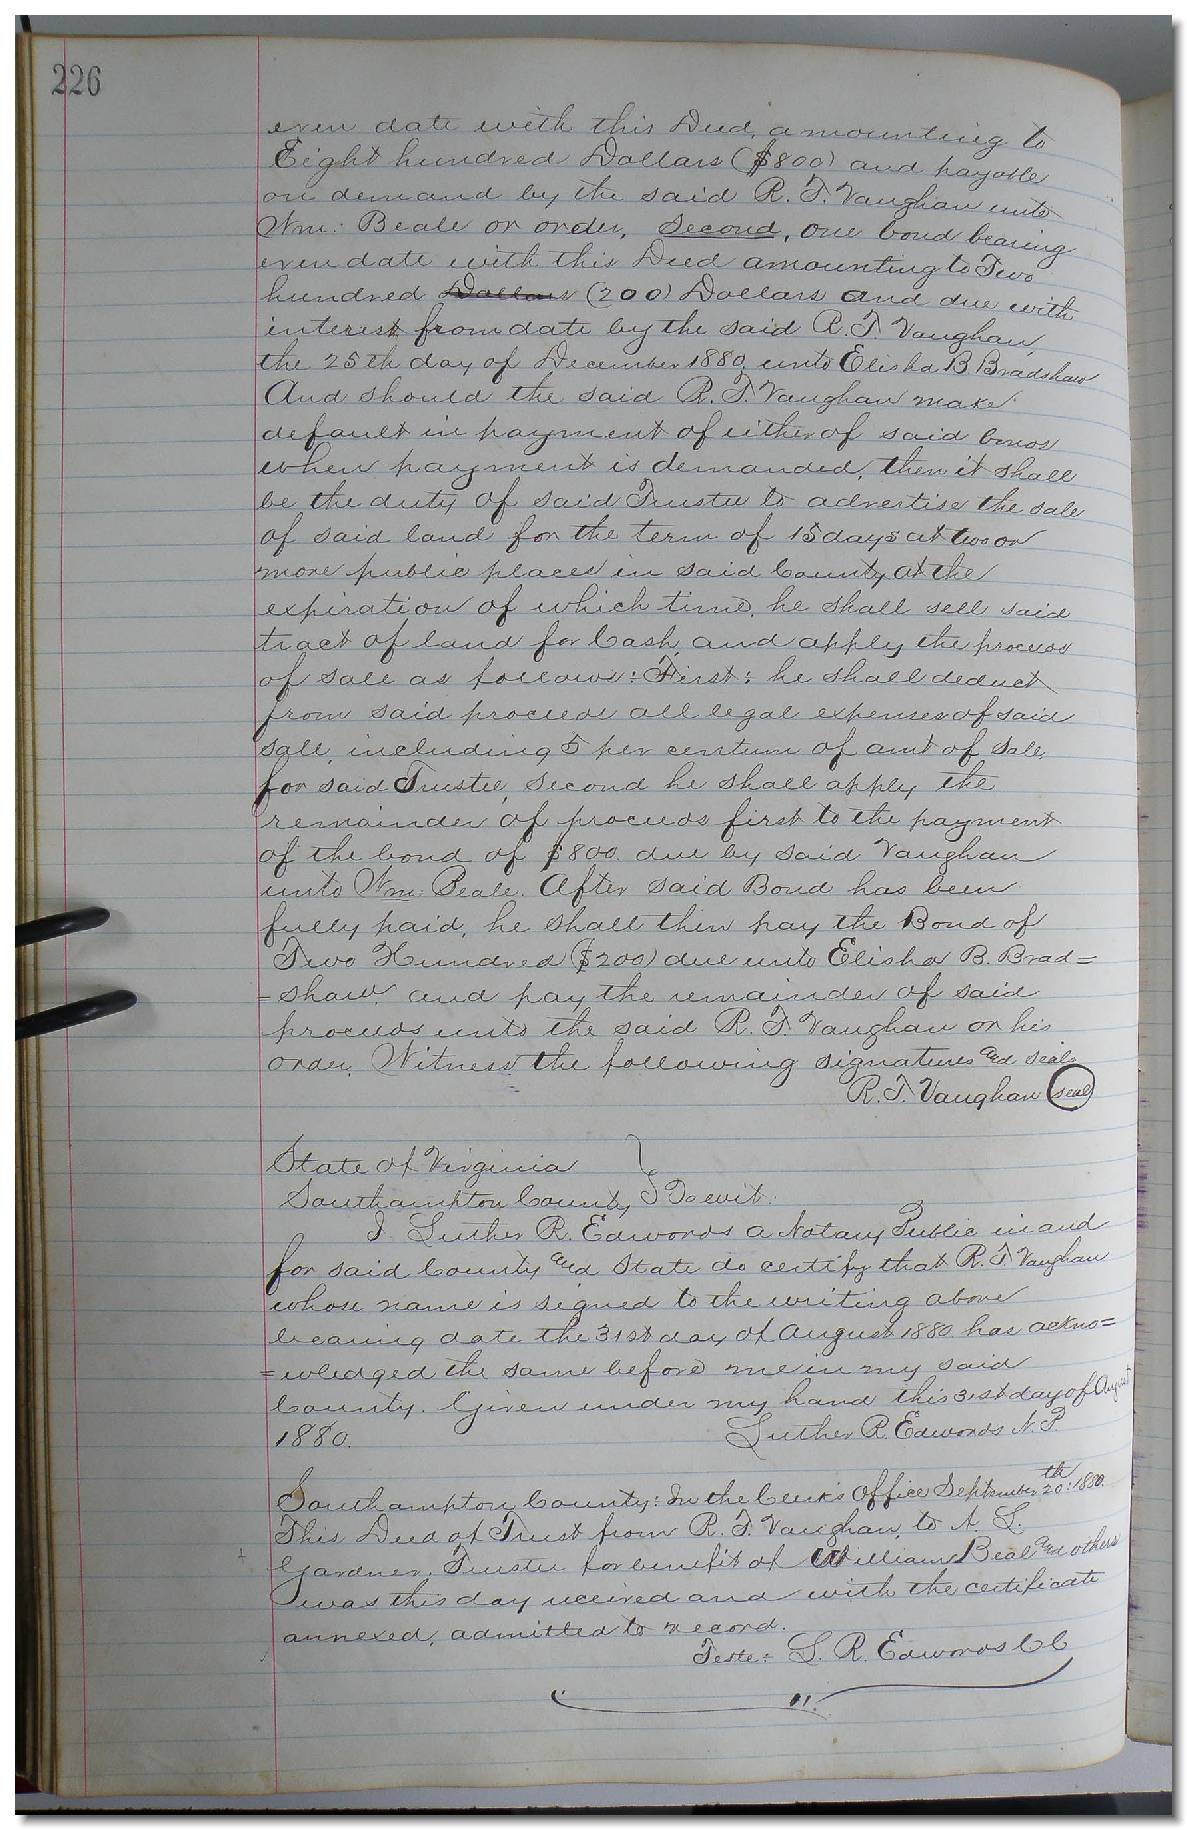 226
even date with this Deed, amounting to
Eight hundred Dollars ($800) and payable
on demand by the said R. T. Vaughan unto
Wm: Beale or order, Second, one bond bearing
even date with this Deed amounting to Two
hundred Dollars (200) Dollars and due with
interest from date by the said R. T. Vaughan,
the 25th day of December 1880, unto Elisha B Bradshaw
And should the said R. T. Vaughan make
default in payment of either of said bonds
when payment is demanded, then it shall
be the duty of said Trustee to advertise the sale
of said land for the term of 15 days at two or
more public places in said County, at the
expiration of which time, he shall sell said
tract of land for Cash, and apply the proceeds
of sale as follows: First: he shall deduct
from said proceeds all legal expenses of said
sale, including 5 per centum of amt of sale,
for said Trustee, second he shall apply the
remainder of proceeds first to the payment
of the bond of $800. due by said Vaughan
unto Wm: Beale. After said Bond has been
fully paid, he shall then pay the Bond of
Two Hundred ($200) due unto Elisha B. Brad=
=shaw. and pay the remainder of said
proceeds unto the said R. T. Vaughan or his
order. Witness the following signatures and seals
R. T. Vaughan seal
State of Virginia
Southampton County } To wit:
I Luther R. Edwards a Notary Public in and
for said County and State do certify that R. T Vaughan
whose name is signed to the writing above
bearing date the 31st day of August 1880 has ackno=
=wledged the same before me in my said
County. Given under my hand this 31st day of August
1880. Luther R. Edwards N. P.
Southampton County: In the Clerk's Office September 20th: 1880.
This Deed of Trust from R. T. Vaughan, to A. L.
Gardner, Trustee for benefit of William Beal and others
was this day received and with the certificate
annexed, admitted to record.
Teste: L. R. Edwards CC